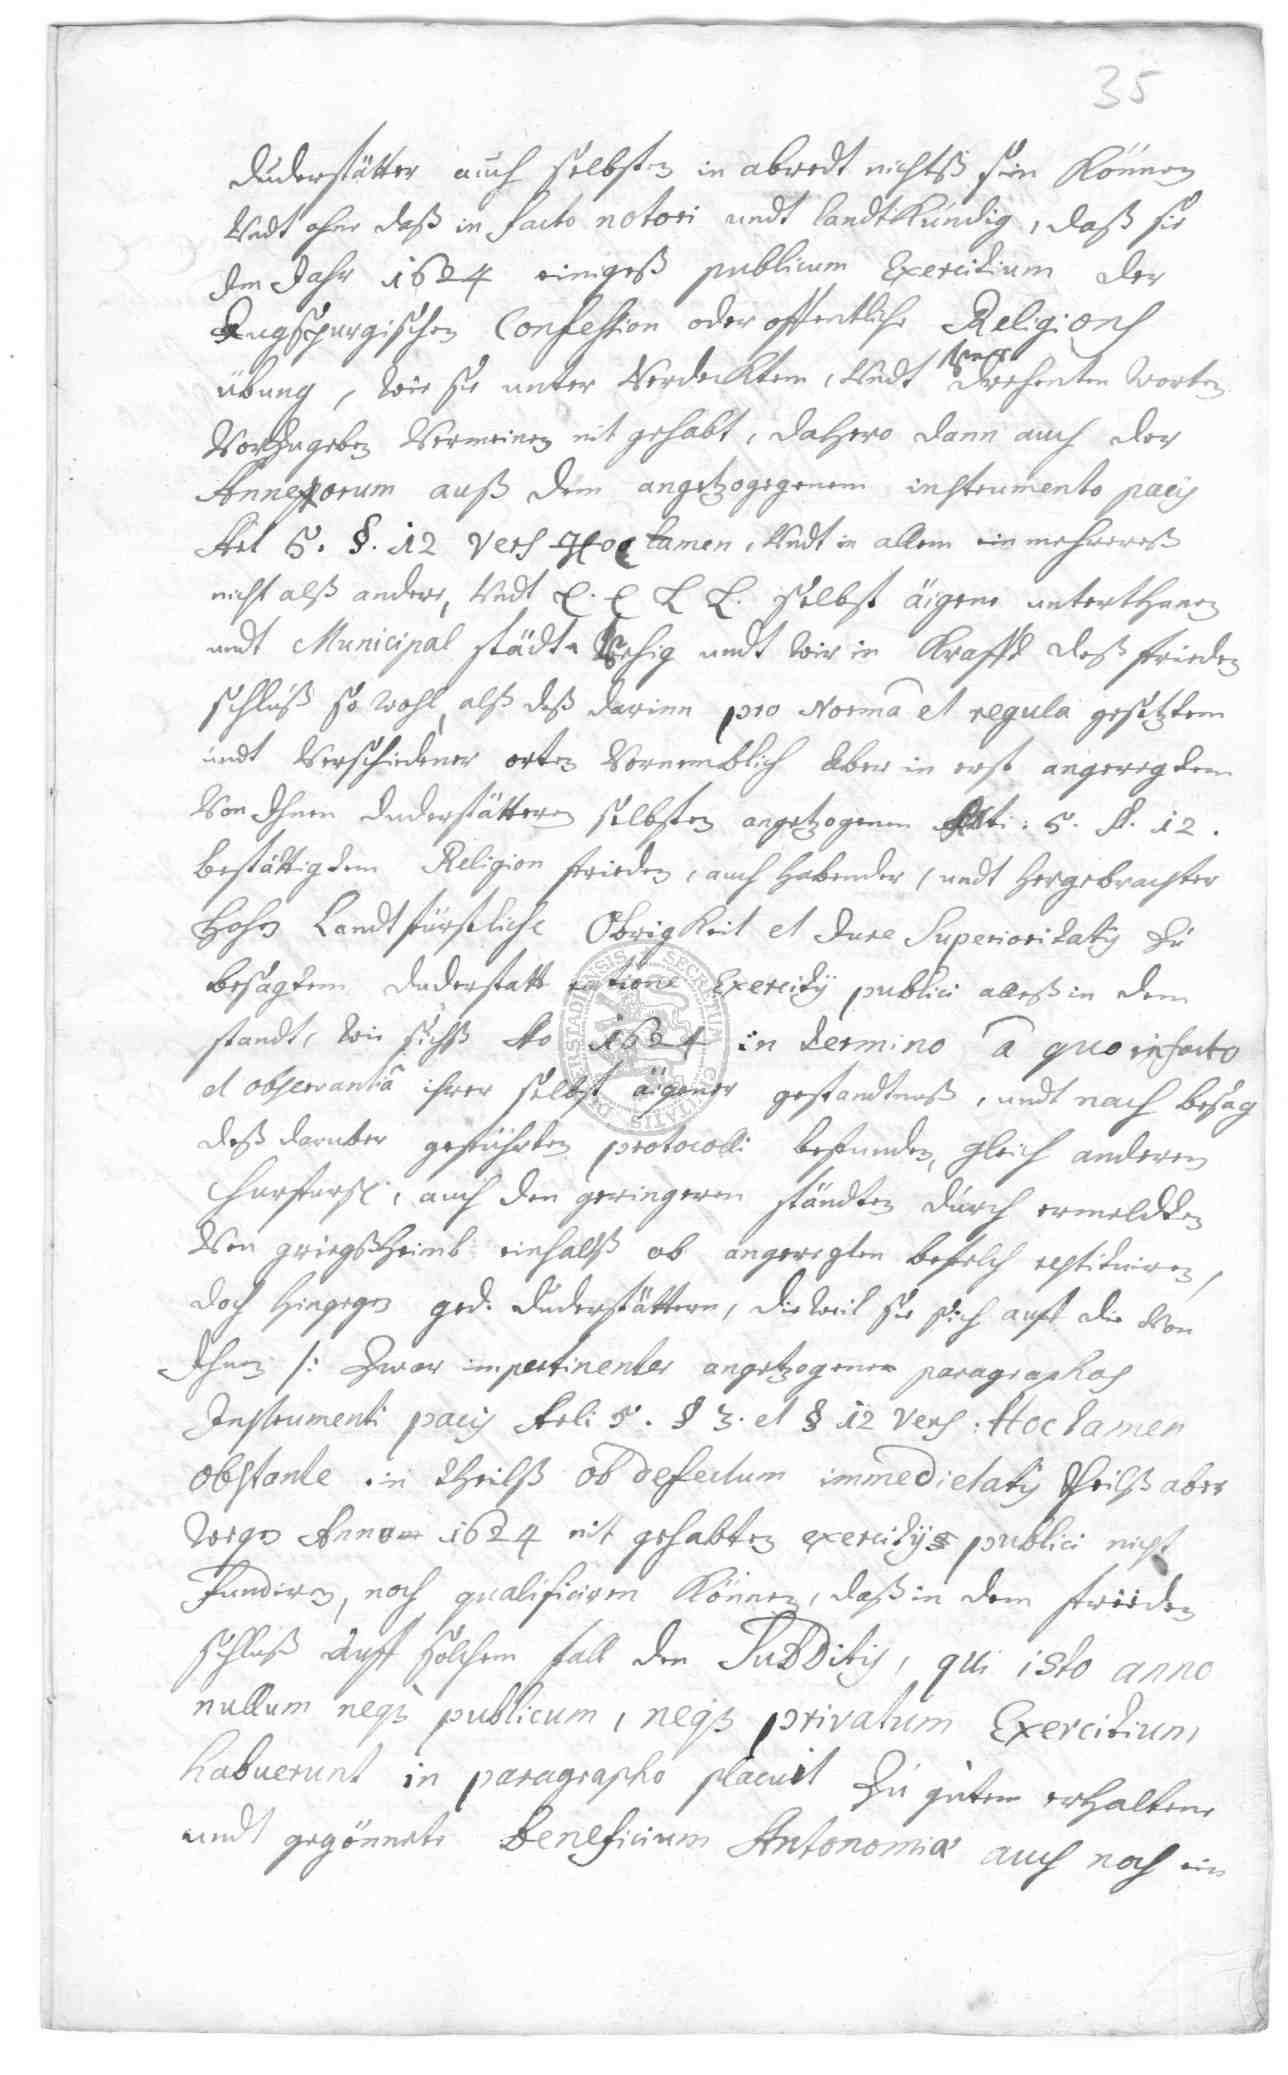 35
Duderstätter auch selbsten in abredt nichtß sein Können
Undt ohne daß in facto notori undt landtKündig, daß sie
Im Jahr 1624 einigeß publicum Exercitium der
Augspurgischen Confession oder offentliche Religions
übung, wie sie unter Verdecktem, Undt Verdrehenten worten
Vorzugeben Vermeinen nit gehabt, dahero dann auch der
Annexorum auß dem angezogegenem instrumento pacis
Art 5. §. 12 vers Hoc tamen, Undt in allem ein mehrereß
nicht alß andere, Undt E. E L L. selbst äigene unterthanen
undt Municipal städte Vehig undt wir in Krafft deß frieden
schluß so wohl, alß deß darinn pro Norma et regula gesetztem
undt Verschiedener orten Vornemblich aber in erst angeregtem
Von Ihnen Duderstättern selbsten angezogenem Arti: 5. §. 12.
bestättigtem Religion frieden, auch habender, undt hergebrachter
Hohen Landtfürstliche ObrigKeit et Jure Superioritatis Zu
besagtem Duderstatt ratione Exercitij publici alleß in dem
standt, wie sichß Ao 1624 in termino a quo in facto
et observantia ihrer selbst äigener geständtnuß, undt nach besag
deß daruber geführten protocolli befunden, gleich anderen
Churfürstl:, auch den geringeren ständten durch ermeldten
Von griegßheimb einhalß ob angeregten befelch restituiren,
doch hingegen ged. Duderstättern, dieweil sie sich auff die Von
Ihnen /: Zwar impertinenter angezogenen paragraphos
Instrumenti pacis Arti 5. § 3. et § 12 Vers: Hoc tamen
obstante ein theilß ob defectum immedietatis theilß aber
wegen Anno 1624 nit gehabten exercitij publici nicht
Fundiren, noch qualificiren Können, daß in dem frieden
schluß auff solchem fall den Subditis, qui isto anno
nullum neqz publicum, neqz privatum Exercitium
habuerunt in paragrapho placuit Zu gutem erhaltene
undt gegönnete Beneficium Autonomiæ auch noch ein
SECRETUM CIVITATIS DUDERSTADIENSIS